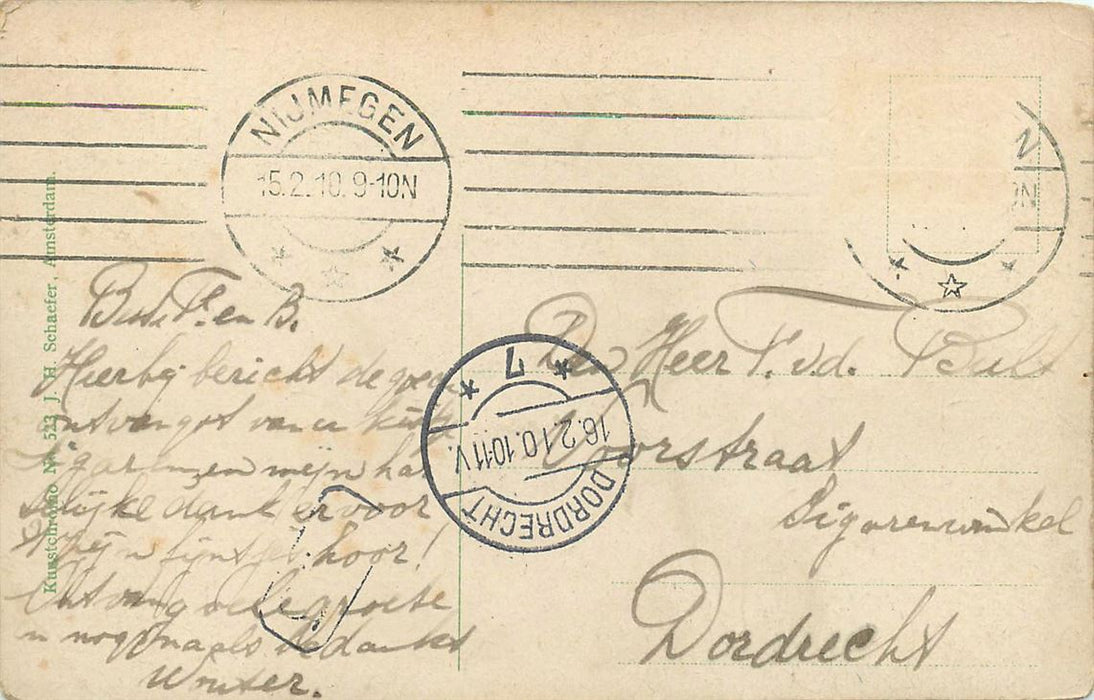 NIJMEGEN
15.2.10. 9-10N
N
ON
Kunstchromo No. 523 J. H. Schaefer, Amsterdam.
en B.
Hierbij bericht de goede
ontvangst van een kistje
sigaren, en mijn har
telijke dank ervoor
Zijn fijntjes hoor!
Ontvang vele groete
n nogmaals bedankt
Wouter.
7
16.2.10. 10-11V.
DORDRECHT
Den Heer P. v.d. Bult
Voorstraat
Sigarenwinkel
Dordrecht